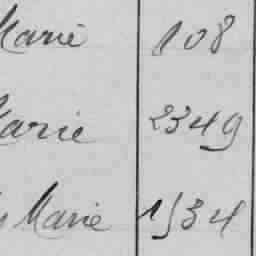 Marie 108
Marie 2349
Marie 1534